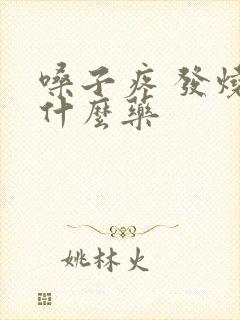 嗓子疼 發燒
什麼藥
姚林火